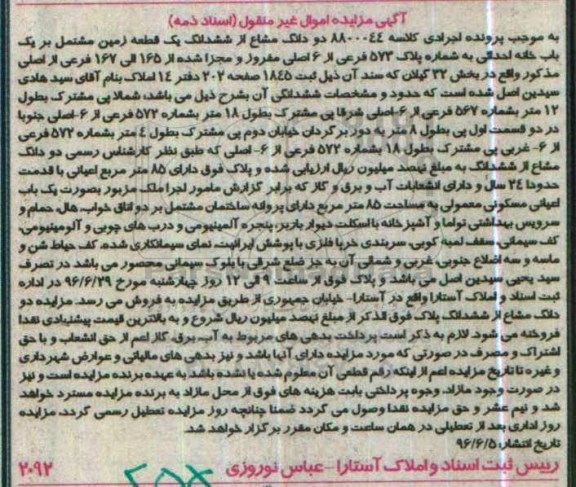 آگهی مزایده اموال غیر منقول (اسناد ذمه)
به موجب پرونده اجرایی کلاسه ۸۸۰۰۰۴۴ دو دانگ مشاع از ششدانگ یک قطعه زمین مشتمل بر یک
باب خانه احداثی به شماره پلاک ۵۷۳ فرعی از ۶ اصلی مفروز و مجزا شده از ۱۶۵ الی ۱۶۷ فرعی از اصلی
مذکور واقع در بخش ۳۲ گیلان که سند آن ذیل ثبت ۱۸۴۵ صفحه ۲۰۲ دفتر ۱۴ املاک بنام آقای سید هادی
سیدین اصل شده است که حدود و مشخصات ششدانگی آن بشرح ذیل می باشد: شمالا پی مشترک بطول
۱۲ متر بشماره ۵۶۷ فرعی از ۶-اصلی شرقا پی مشترک بطول ۱۸ متر بشماره ۵۷۲ فرعی از ۶-اصلی جنوبا
در دو قسمت اول پی بطول ۸ متر به دور برگردان خیابان دوم پی مشترک بطول ٤ متر بشماره ۵۷۲ فرعی
از ۶- غربی پی مشترک بطول ۱۸ بشماره ۵۷۲ فرعی از ۶- اصلی که طبق نظر کارشناس رسمی دو دانگ
مشاع از ششدانگ به مبلغ نهصد میلیون ریال ارزیابی شده و پلاک فوق دارای ۸۵ متر مربع اعیانی با قدمت
حدودا ۲٤ سال و دارای انشعابات آب و برق و گاز که برابر گزارش مامور اجرا ملک مزبور بصورت یک باب
اعیانی مسکونی معمولی به مساحت ۸۵ متر مربع دارای پروانه ساختمان مشتمل بر دو اتاق خواب، هال، حمام و
سرویس بهداشتی توام با آشپزخانه با اسکلت دیوار باربر، پنجره آلمینیومی و درب های چوبی و آلومینیومی،
کف سیمانی، سقف لمبه کوبی، سربندی خرپا فلزی با پوشش ایرانیت، نمای سیمانکاری شده، کف حیاط شن و
ماسه و سه اضلاع جنوبی غربی و شمالی آن به جز ضلع شرقی با بلوک سیمانی محصور می باشد در تصرف
سید یحیی سیدین اصل می باشد و پلاک فوق از ساعت ۹ الی ۱۲ روز چهارشنبه مورخ ۹۶/۶/۲۹ در اداره
ثبت اسناد و املاک آستارا واقع در آستارا- خیابان جمهوری از طریق مزایده به فروش می رسد. مزایده دو
دانگ مشاع از ششدانگ پلاک فوق الذکر از مبلغ نهصد میلیون ریال شروع و به بالاترین قیمت پیشنهادی نقدا
فروخته می شود. لازم به ذکر است پرداخت بدهی های مربوط به آب، برق، گاز اعم از حق انشعاب و یا حق
اشتراک و مصرف در صورتی که مورد مزایده دارای آنها باشد و نیز بدهی های مالیاتی و عوارض شهرداری
و غیره تا تاریخ مزایده اعم از اینکه رقم قطعی آن معلوم شده یا نشده باشد به عهده برنده مزایده است و نیز
در صورت وجود مازاد، وجوه پرداختی بابت هزینه های فوق از محل مازاد به برنده مزایده مسترد خواهد
شد و نیم عشر و حق مزایده نقدا وصول می گردد ضمنا چنانچه روز مزایده تعطیل رسمی گردد، مزایده
روز اداری بعد از تعطیلی در همان ساعت و مکان مقرر برگزار خواهد شد.
تاریخ انتشار: ۹۶/۶/۵
رییس ثبت اسناد و املاک آستارا - عباس نوروزی ۲۰۹۲